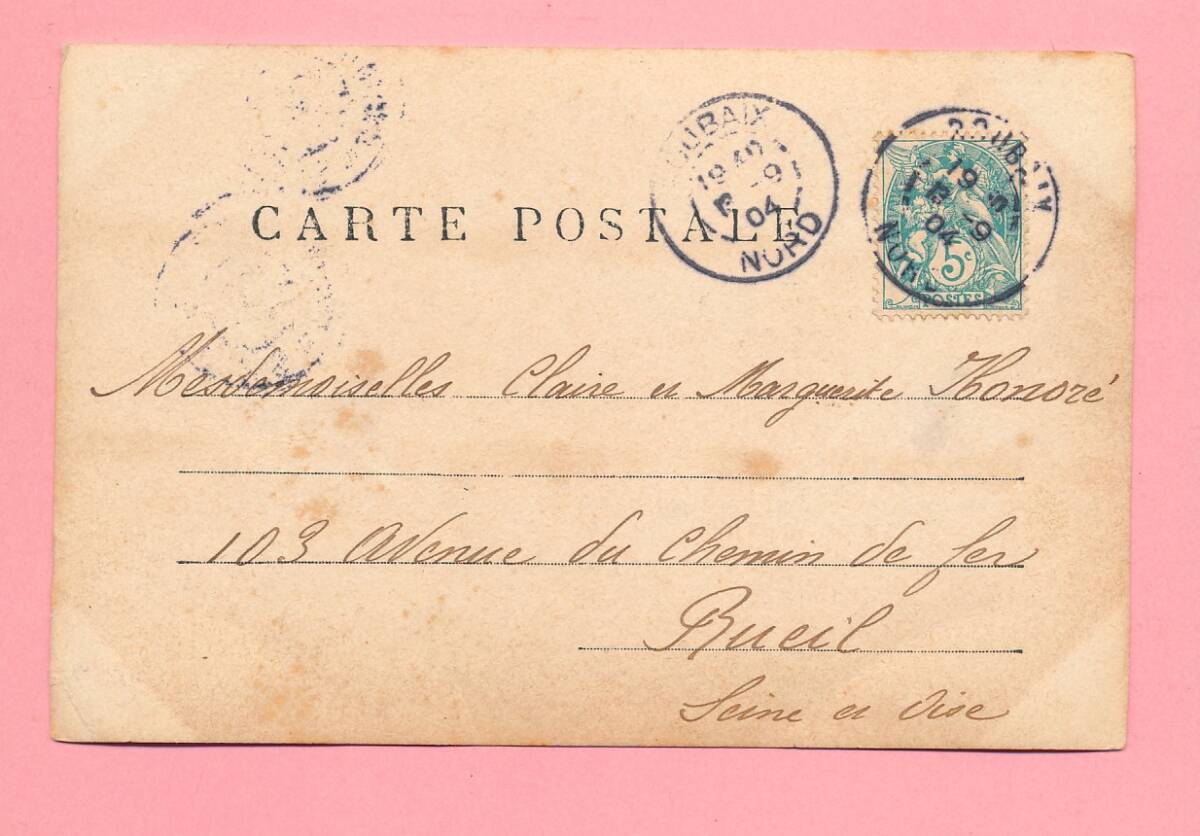 CARTE POSTALE
ROUBAIX
19 -9
04
NORD
ROUBAIX
19
-9
04
NORD
5c
POSTES
Mesdemoiselles Claire et Marguerite Honoré
103 Avenue du Chemin de fer
Rueil
Seine et Oise